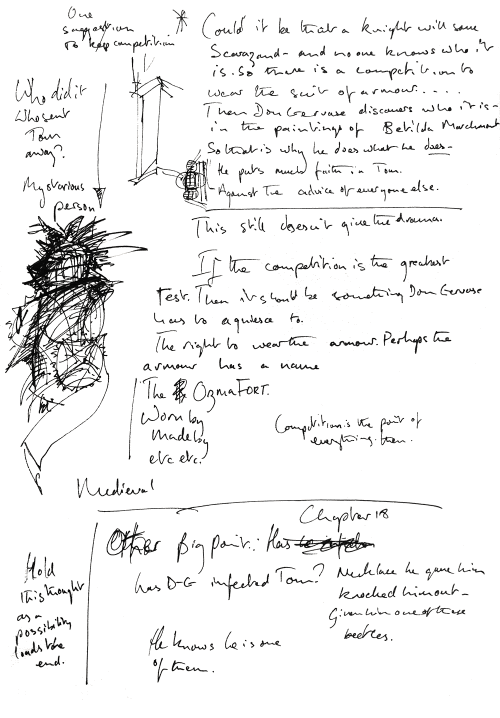 One
suggestion
to keep competition
Could it be that a knight will save
Scarazand - and no one knows who it
is. So there is a competition to
wear the suit of armour....
Then Don Gervase discovers who it is -
in the paintings of Betilda Marchmont
So that is why he does what he does -
- He puts much faith in Tom.
- Against the advice of everyone else.
Who did it
Who sent
Tom
away?
Mysterious
person
This still doesn't give the drama.
If the competition is the greatest
Test. Then it should be something Don Gervase
has to aquiesce to.
The right to wear the armour. Perhaps the
armour has a name
The OzmaFORT.
Worn by
Made by
etc etc.
Competition is the point of
everything then.
Medieval
Chapter 18
Other Big point: Has
has D-G infected Tom?
Necklace he gave him
knocked him out -
Given him one of these
beetles.
He knows he is one
of them.
Hold
this thought
as a
possibility
towards the
end.